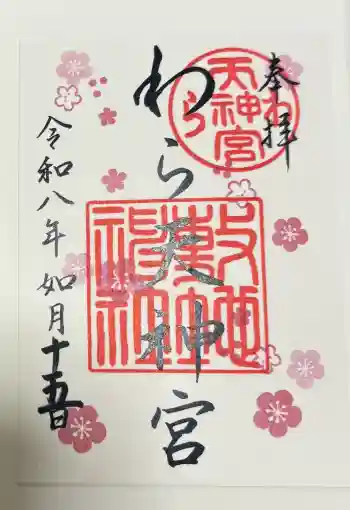 奉拝
わら天神宮
令和八年如月十五日
わら
天神宮
敷地神社